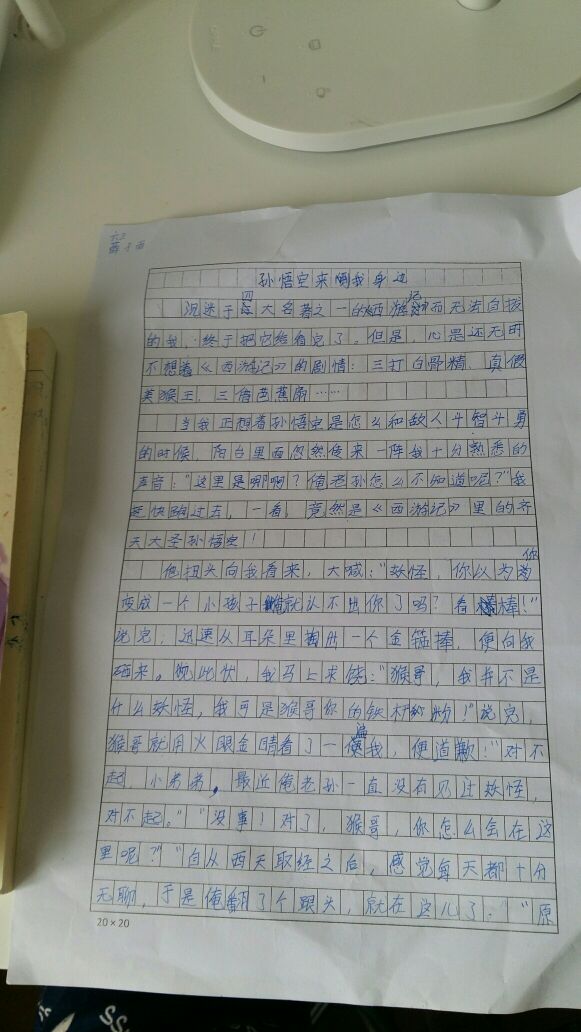 六2
孙悟空来到我身边
沉迷于四大名著之一的西游记而无法自拔
的我,终于把它给看完了。但是,儿是还无时
不想着《西游记》的剧情:三打白骨精、真假
美猴王、三借芭蕉扇……
当我正想着孙悟空是怎么和敌人斗智斗勇
的时候,阳台里面忽然传来一阵我十分熟悉的
声音:“这里是哪啊?俺老孙怎么不知道呢?”我
赶快跑过去,一看,竟然是《西游记》里的齐
天大圣孙悟空!
他扭头向我看来,大喊:“妖怪,你以为你
变成一个小孩子俺就认不出你了吗?看棒!”
说完,迅速从耳朵里掏出一个金箍棒,便向我
砸来。见此状,我马上求饶:“猴哥,我并不是
什么妖怪,我可是猴哥你的铁杆粉!”说完,
猴哥就用火眼金睛看了一遍我,便道歉!“对不
起,小弟弟,最近俺老孙一直没有见过妖怪,
对不起。”“没事!对了,猴哥,你怎么会在这
里呢?”“自从西天取经之后,感觉每天都十分
无聊,于是俺翻了个跟头,就在这儿了。”“原
20×20